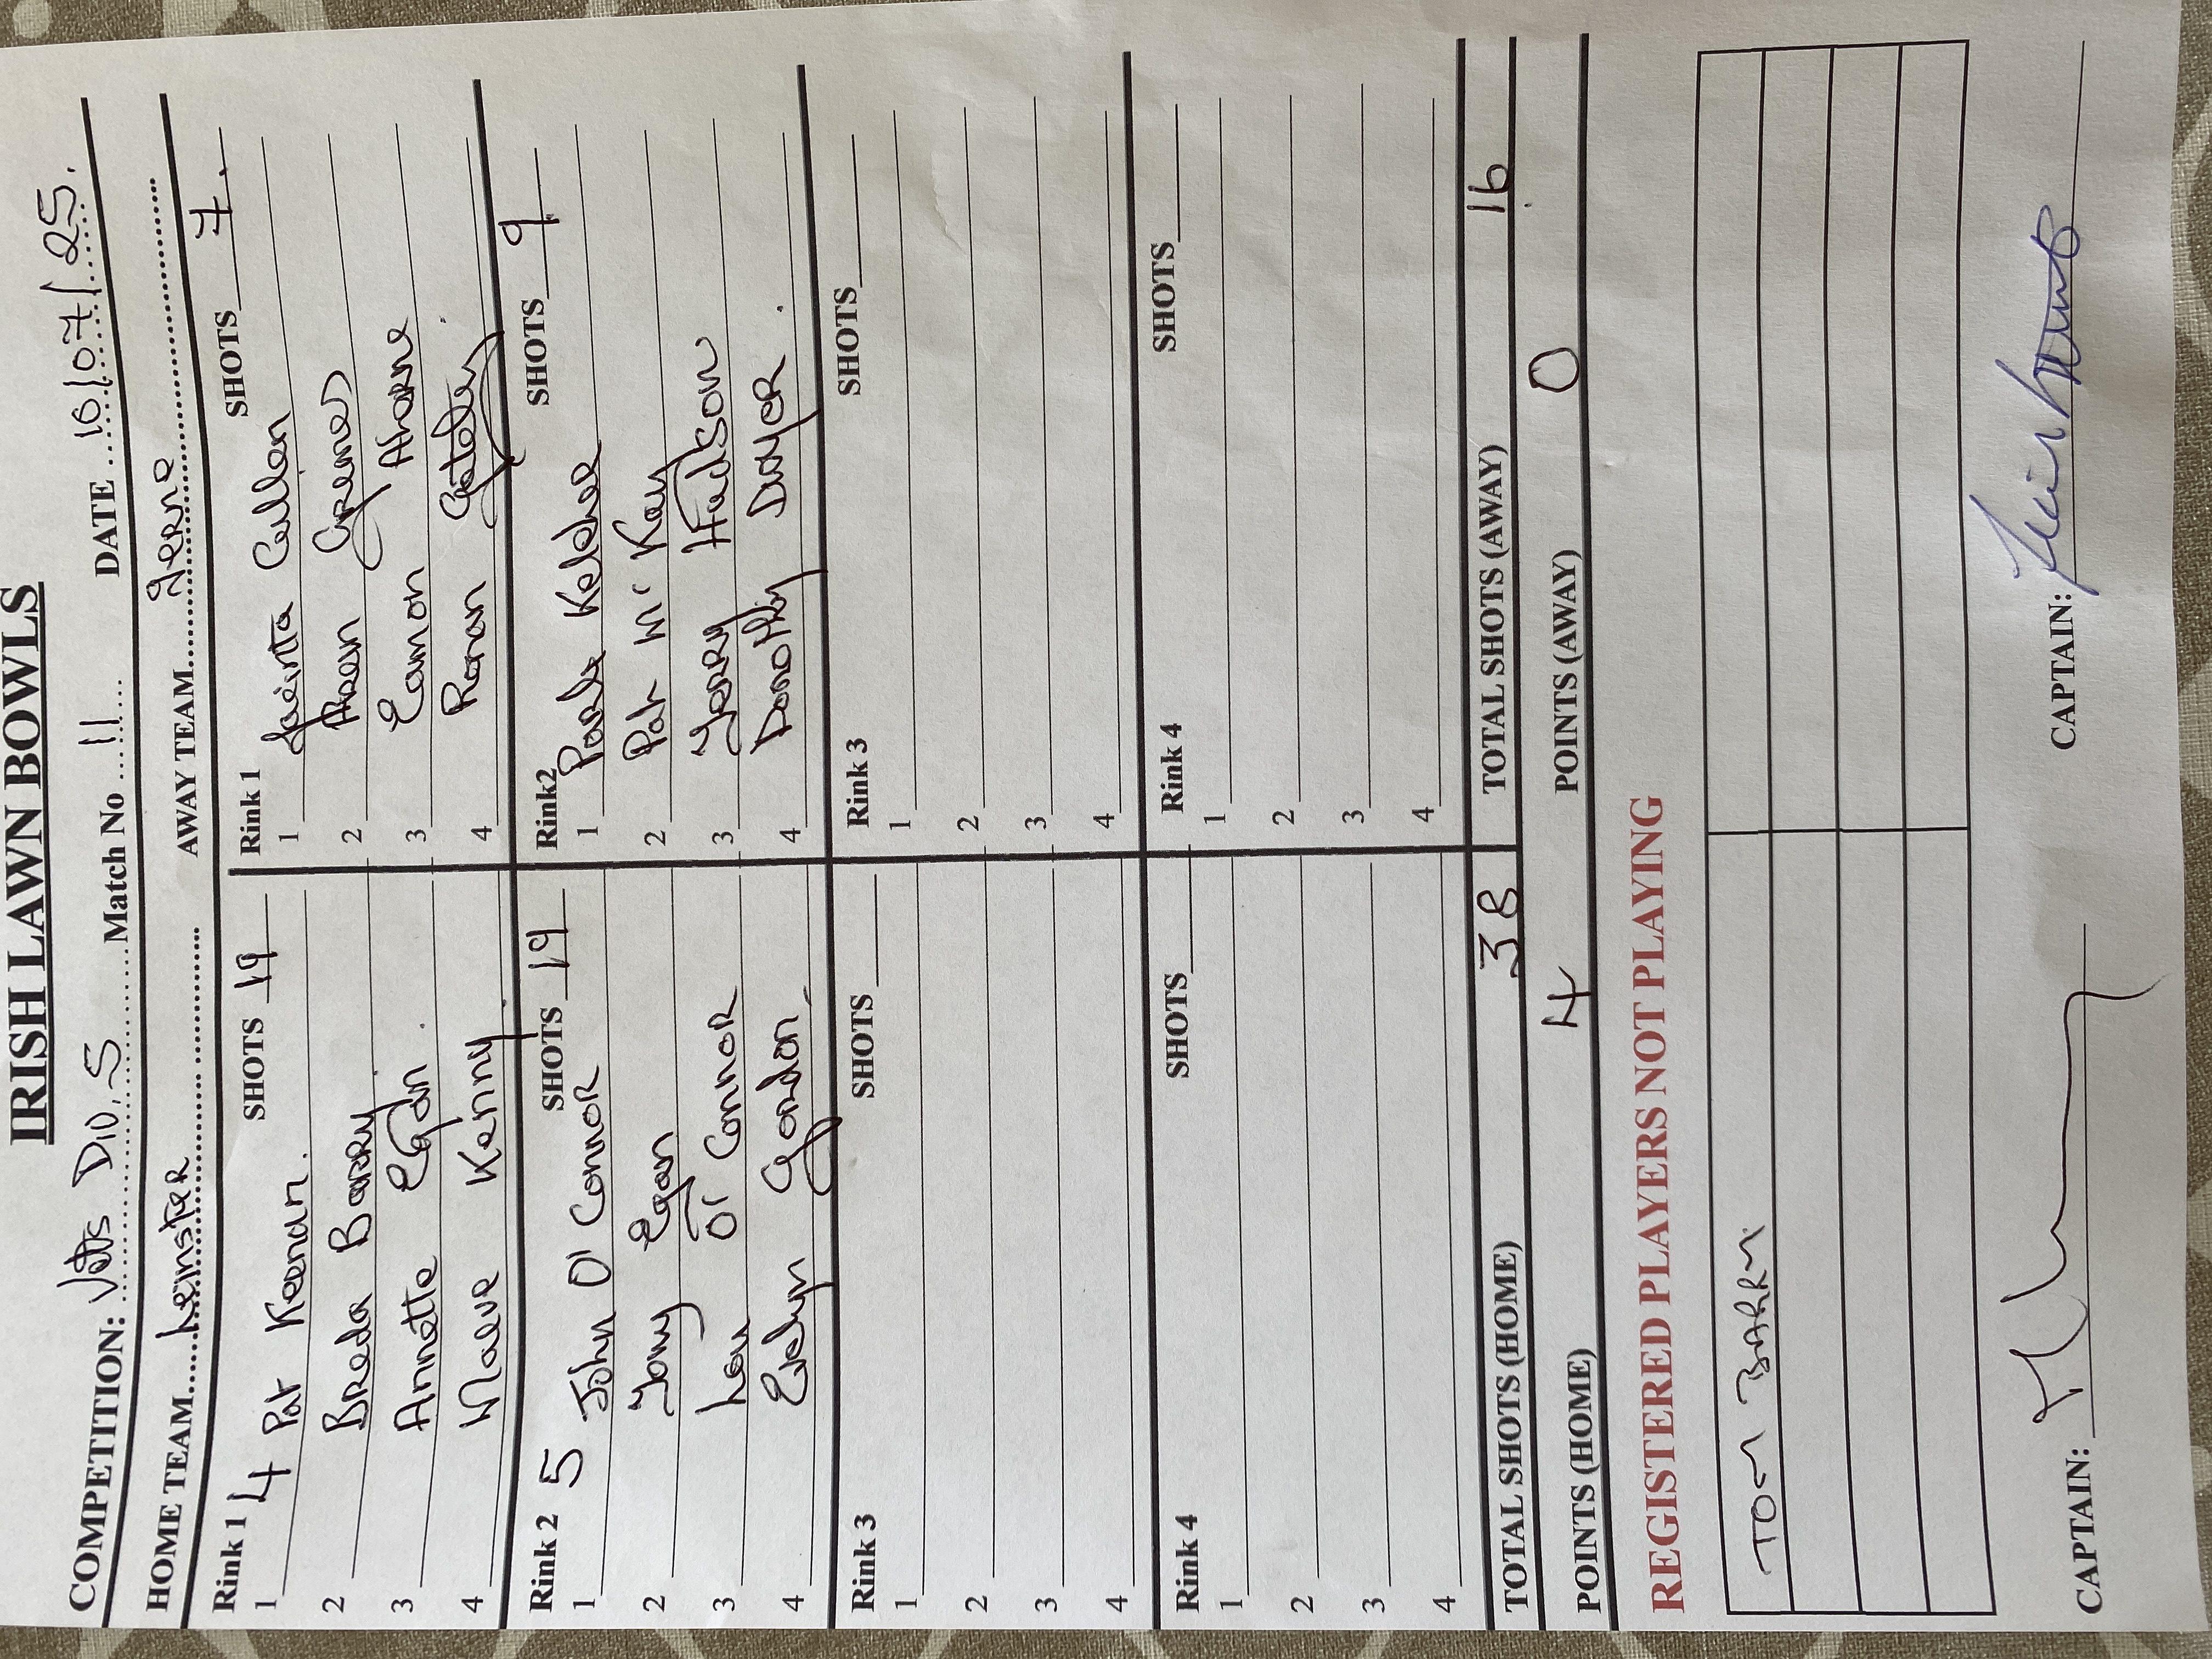 IRISH LAWN BOWLS
COMPETITION: Vetts Div. 5 Match No 11 DATE 16/07/25.
HOME TEAM Leinster AWAY TEAM Jerne
Rink 1 4 SHOTS 19 Rink 1 SHOTS 7.
1 Pat Keenan. 1 Jacinta Cullen
2 Breda Barry 2 Greene
3 Annette Egan. 3 Eamon Aharne
4 Maeve Kenny 4 Ronan
Rink 2 5 SHOTS 19 Rink2 SHOTS 9
1 John O'Connor 1 Kelehoe
2 Tony Egan 2 Pat McKay
3 Lou O'Connor 3 Gerry Hudson
4 Evelyn Gordon 4 Dorothy Dwyer.
Rink 3 SHOTS Rink 3 SHOTS
1 1
2 2
3 3
4 4
Rink 4 SHOTS Rink 4 SHOTS
1 1
2 2
3 3
4 4
TOTAL SHOTS (HOME) 38 TOTAL SHOTS (AWAY) 16
POINTS (HOME) 4 POINTS (AWAY) 0
REGISTERED PLAYERS NOT PLAYING
TOM BARRY
CAPTAIN: CAPTAIN: